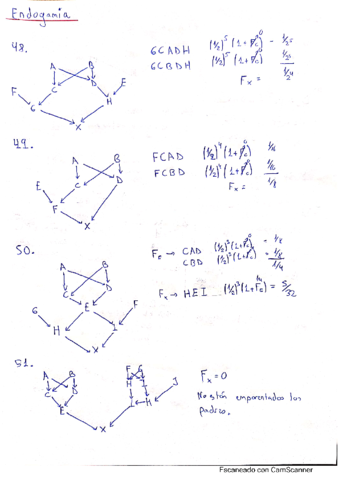 Endogamia
48.
A B
F C D E
G H
X
GCADH (1/2)⁵ (1+F
GCBDH (1/2)⁵ (1+F
Fx =
49.
A B
E C D
F X
FCAD (1/2)⁴ (1+F
FCBD (1/2)⁴ (1+F
Fx = 1/8
50.
A B
C D
G E F
H I
X
FE → CAD (1/2)³ (1+F 1/8
CBD (1/2)³ (1+F 1/8
1/4
Fx → HEI (1/2)³ (1+FE) = 5/32
51.
A B F G
C D H I J
E K
X
Fx = 0
No están emparentados los
padres.
Escaneado con CamScanner